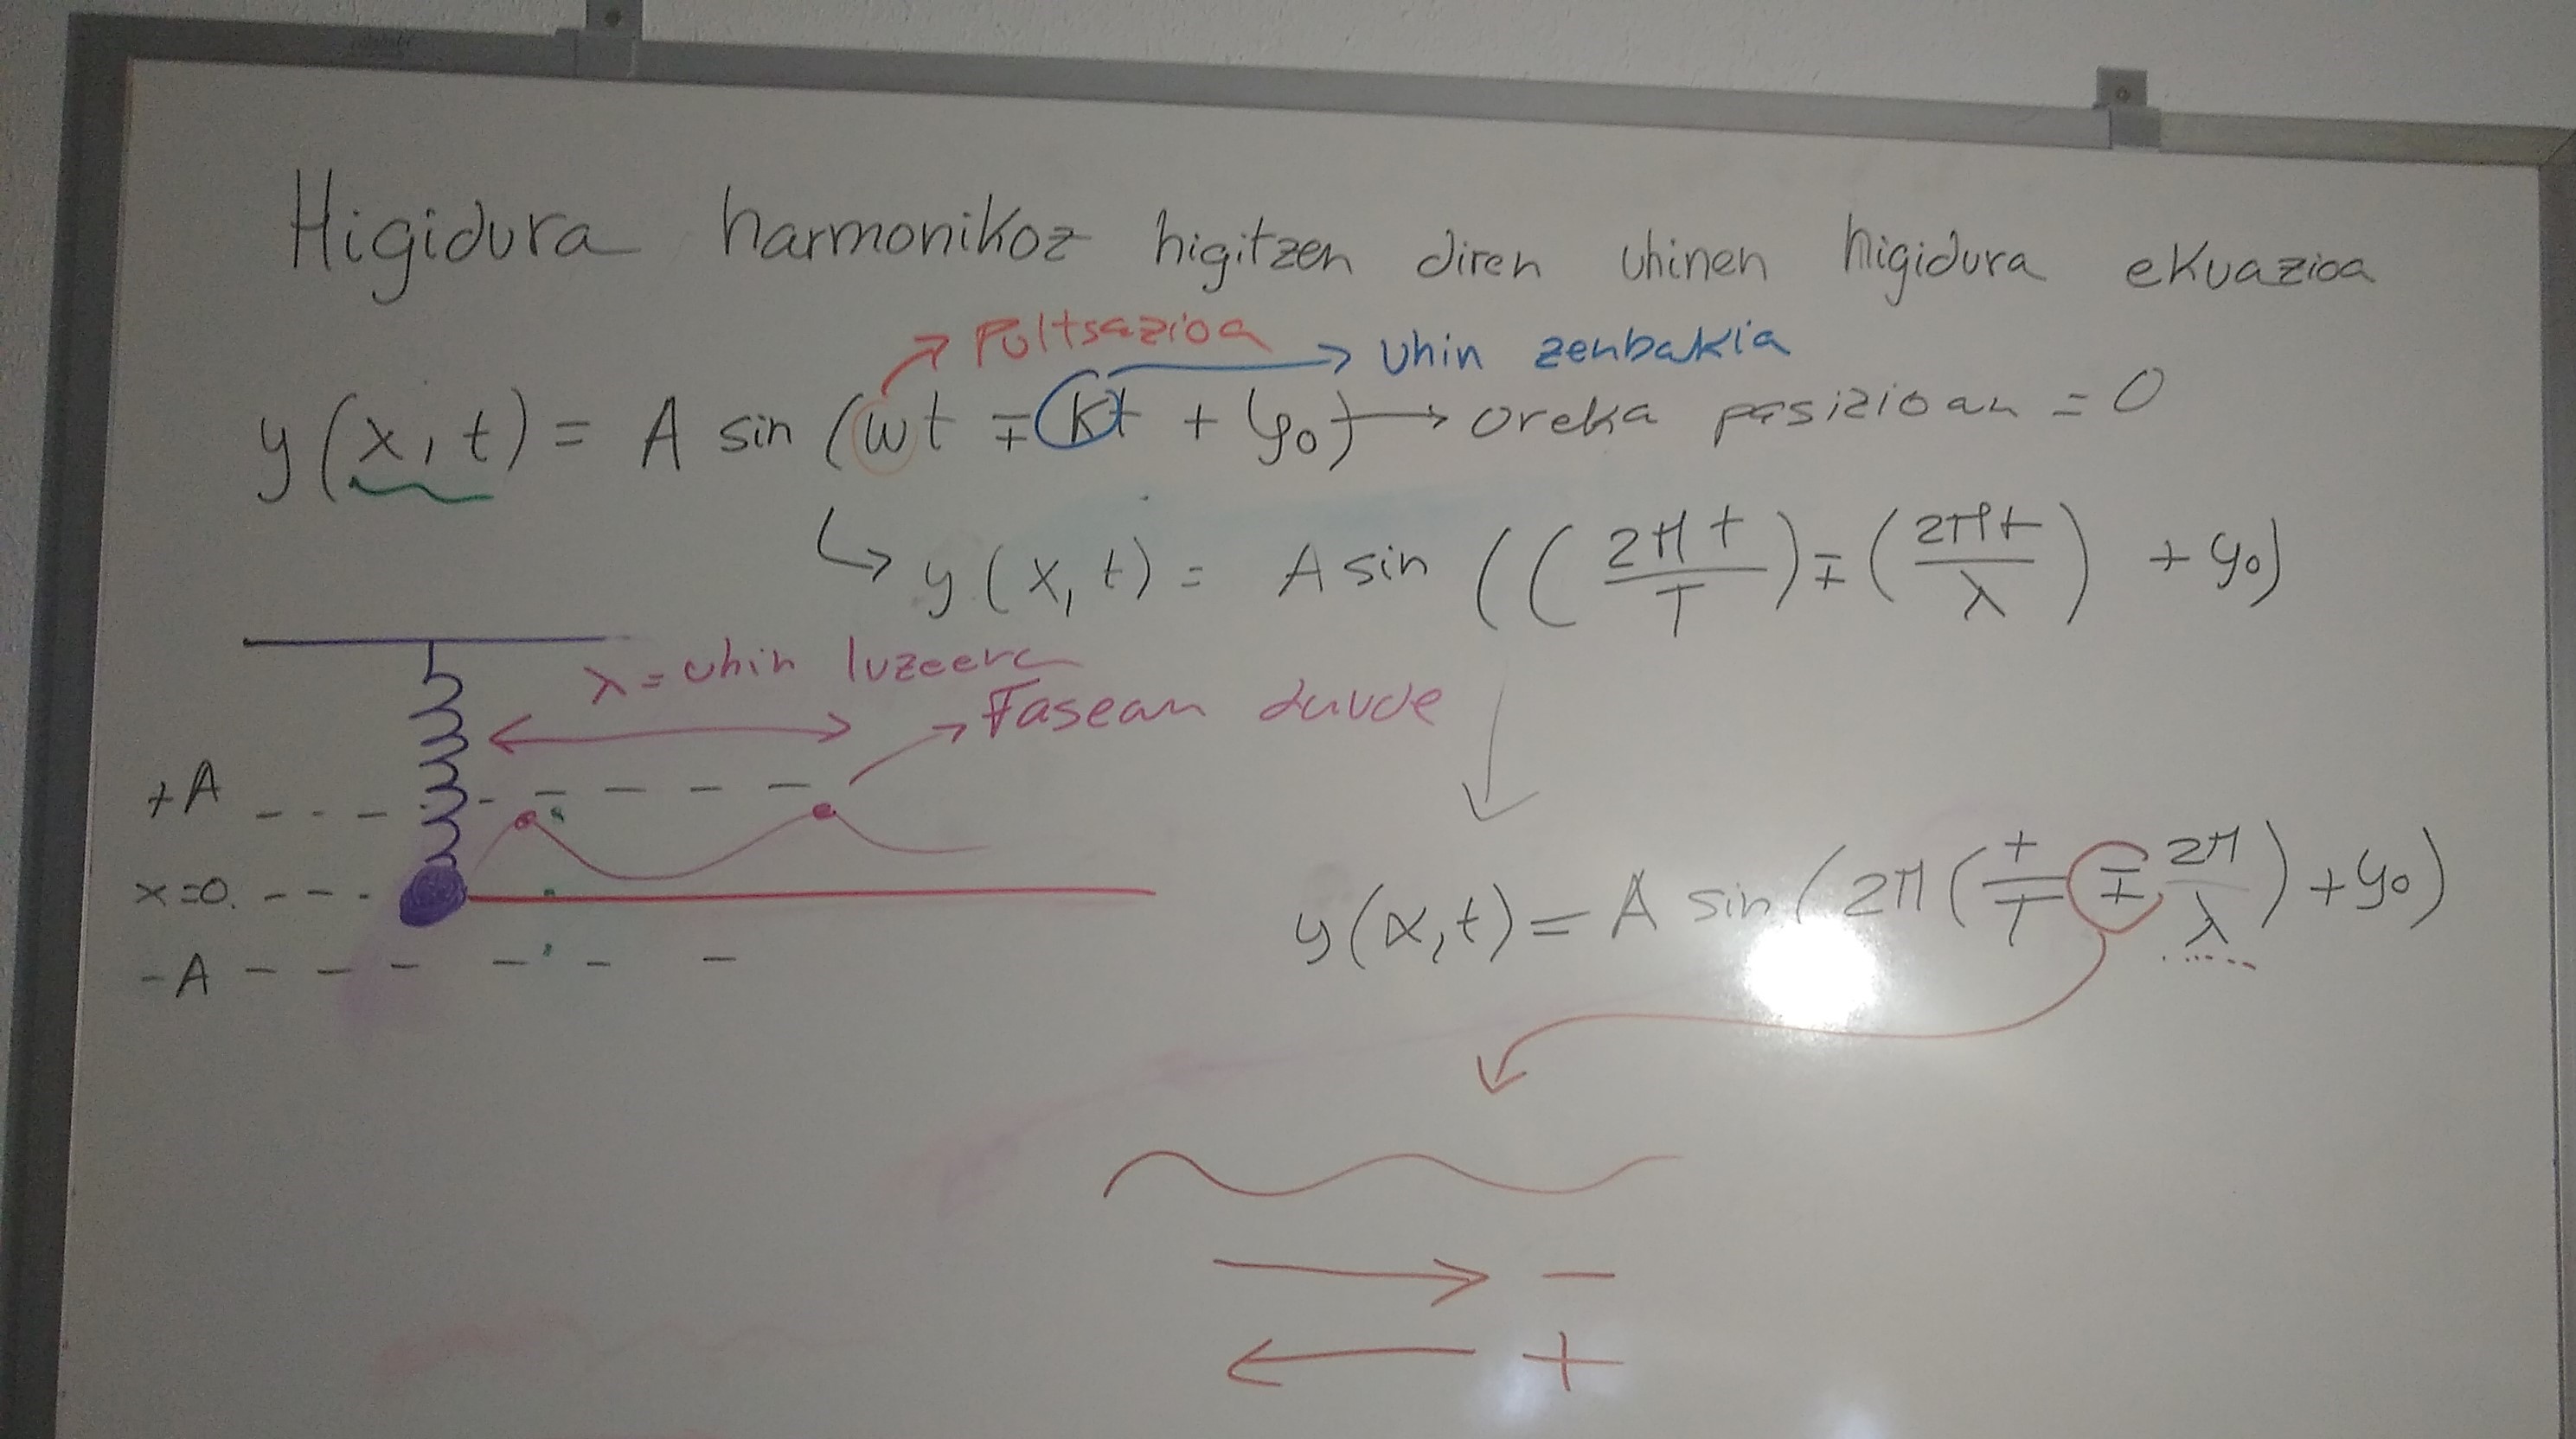 Higidura harmonikoz higitzen diren uhinen higidura ekuazioa
Pultsazioa
uhin zenbakia
y(x,t) = A sin (ωt ∓ kt + φ0) → oreka posizioan = 0
↳ y(x,t) = A sin ((2πt/T) ∓ (2πt/λ) + φ0)
λ = uhin luzeera
Fasean daude
+A
x=0.
-A
y(x,t) = A sin (2π (t/T ∓ 2π/λ) + φ0)
→ −
← +